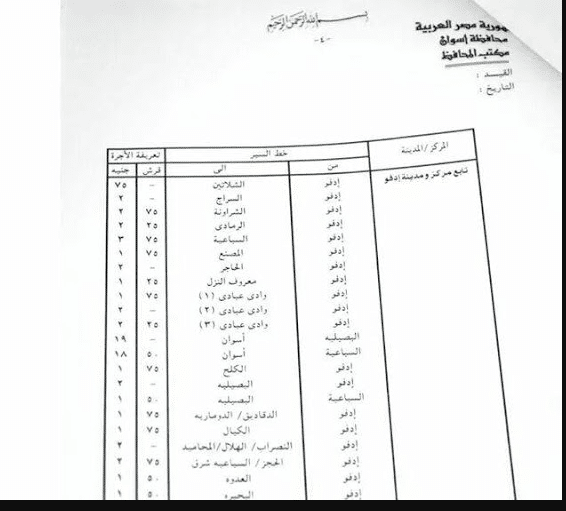 بسم الله الرحمن الرحيم
جمهورية مصر العربية
محافظة إسوان
مكتب المحافظ
-٤-
القيد :
التاريخ :
المركز/المدينة خط السير تعريفة الأجرة
من الى قرش جنيه
تابع مركز ومدينة إدفو إدفو الشلاتين - ٧٥
إدفو السراج - ٢
إدفو الشراونة ٧٥ ٢
إدفو الرمادى ٢٥ ٢
إدفو السباعية ٧٥ ٣
إدفو المصنع ٧٥ ١
إدفو الحاجر - ٢
إدفو معروف النزل ٢٥ ١
إدفو وادى عبادى (١) ٧٥ ١
إدفو وادى عبادى (٢) - ٢
إدفو وادى عبادى (٣) ٢٥ ٢
البصيليه أسوان - ١٩
السباعية أسوان ٥٠ ١٨
إدفو الكلح ٧٥ ١
إدفو البصيليه - ٢
السباعية البصيليه ٥٠ ١
إدفو الدقاديق/ الدوماريه ٧٥ ١
إدفو الكيال ٧٥ ١
إدفو النصراب/ الهلال/المحاميد - ٢
إدفو الحجز/ السباعيه شرق ٧٥ ٢
إدفو العدوه ٥٠ ١
إدفو البحيره ٥٠ ١